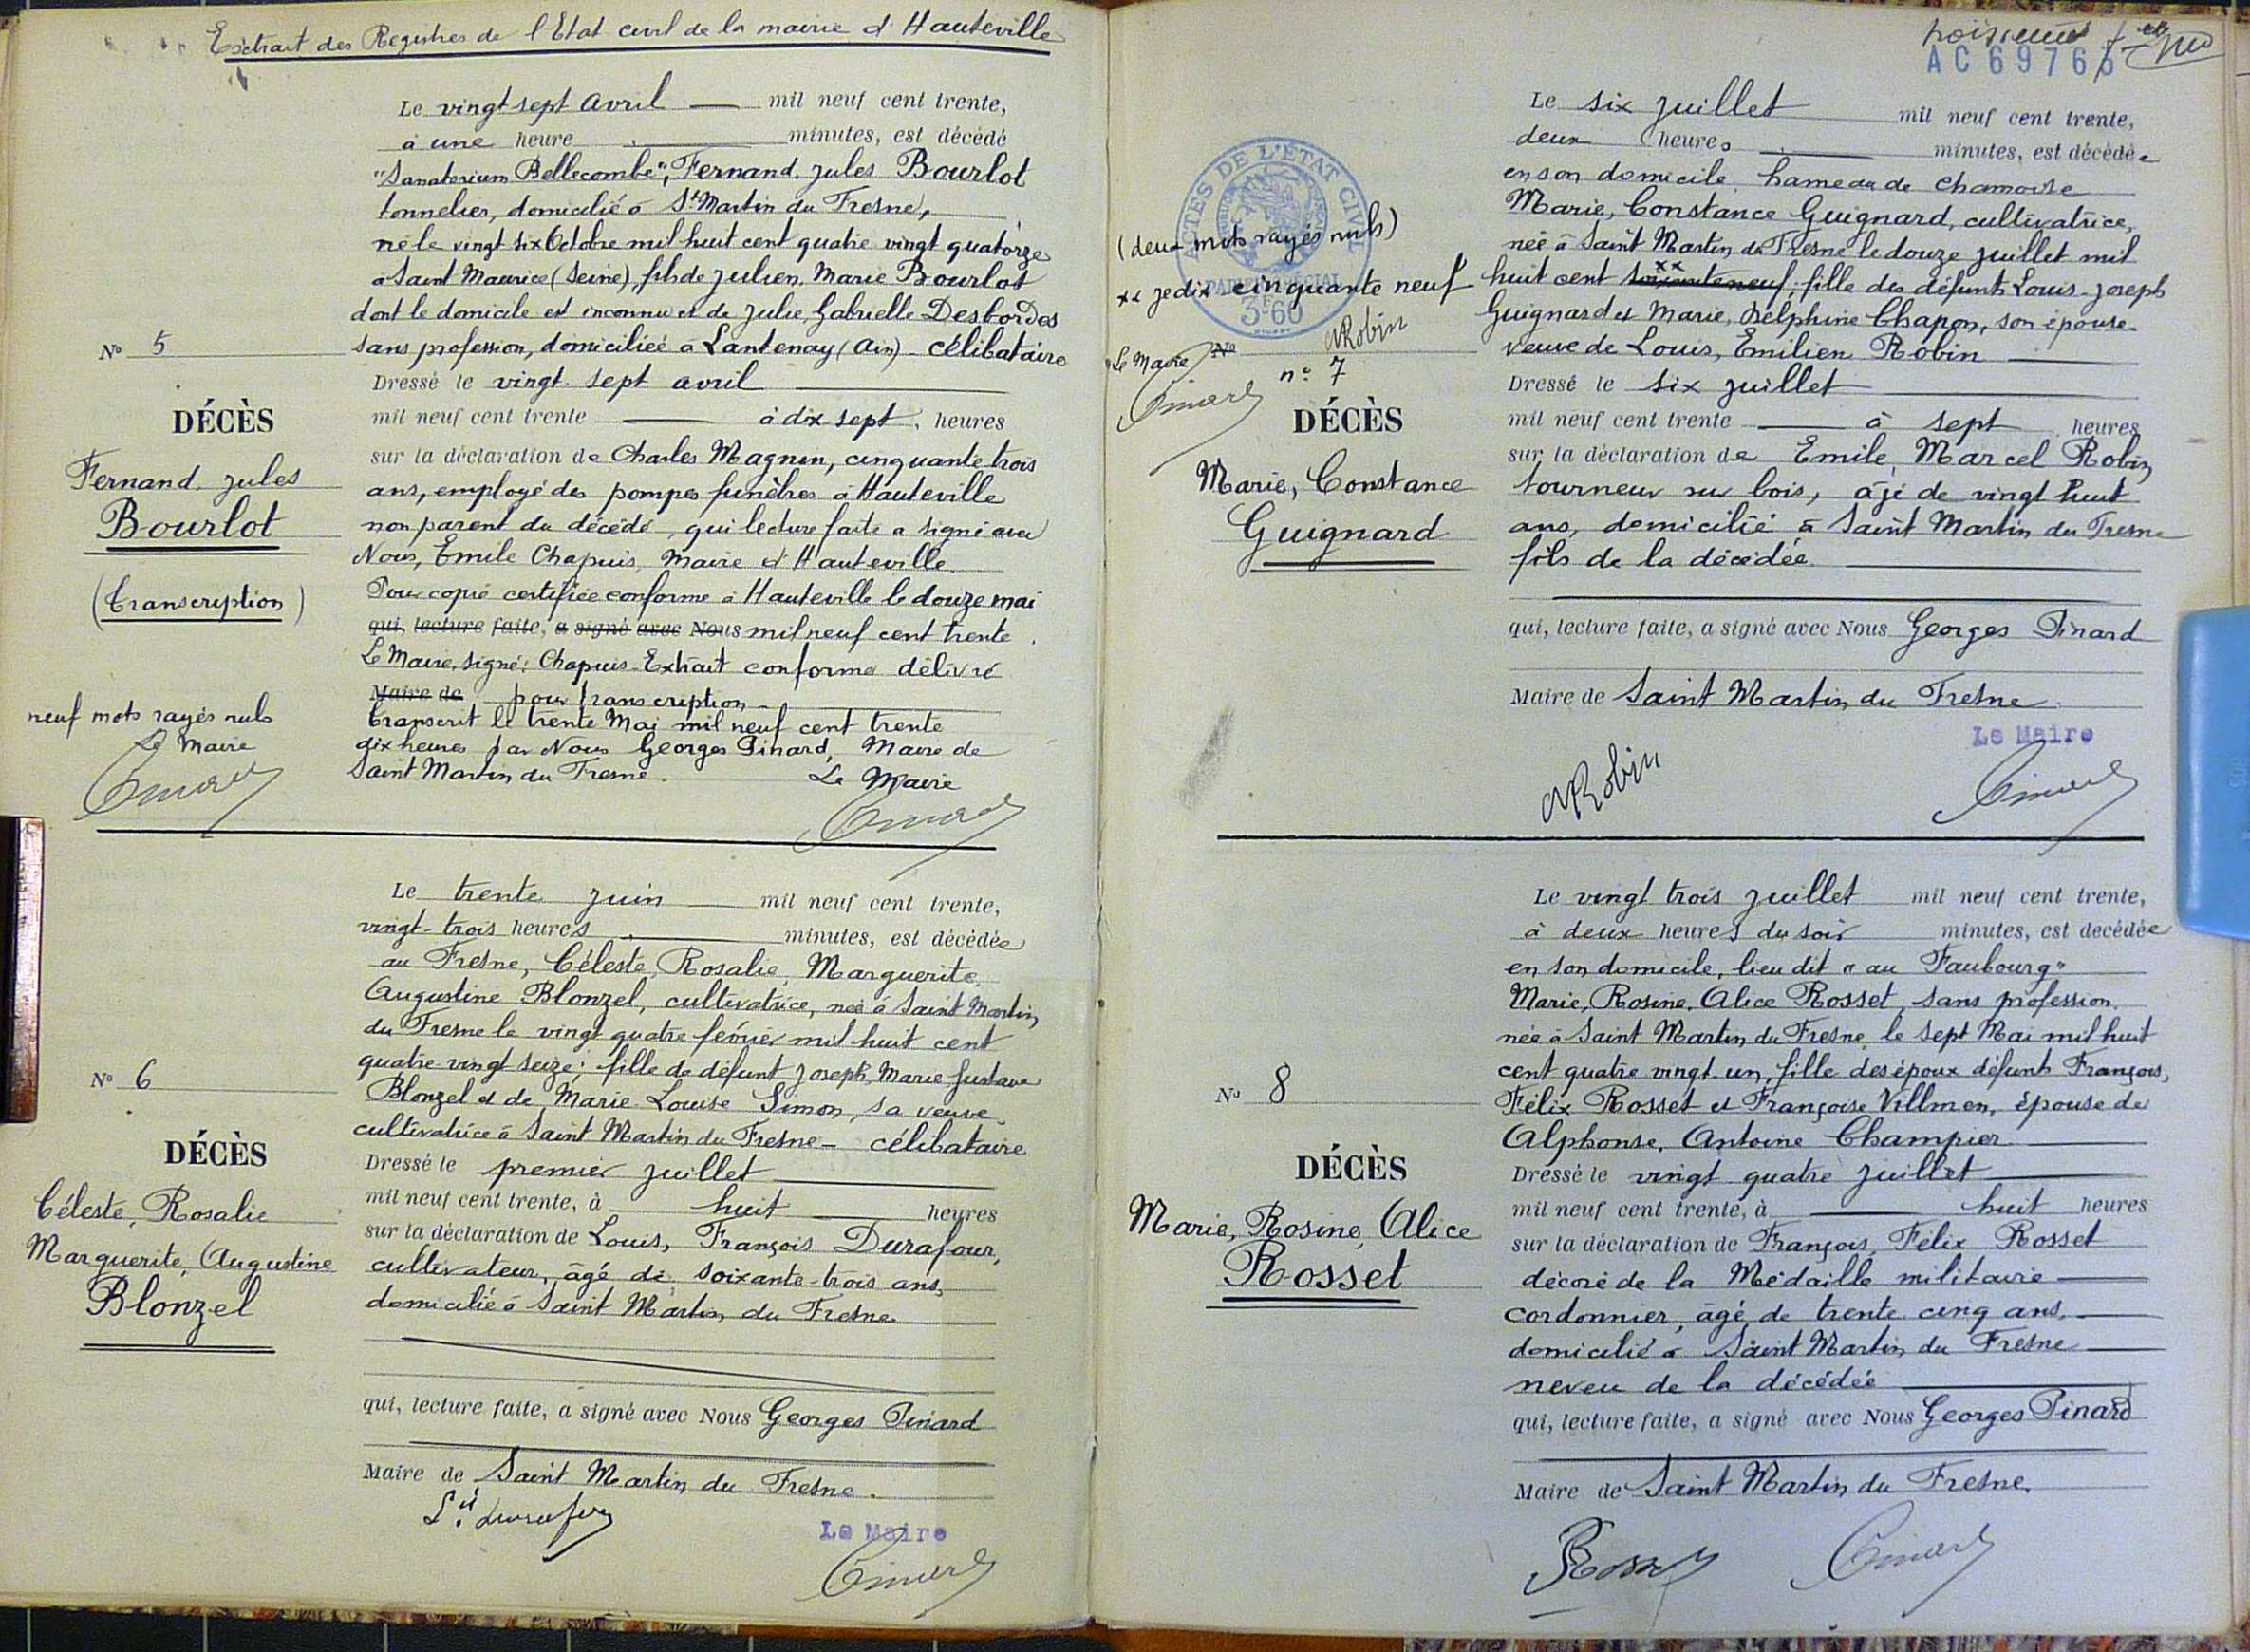 Extrait des Registres de l'Etat civil de la mairie d'Hauteville
Le vingt sept avril mil neuf cent trente,
à une heure minutes, est décédé
"Sanatorium Bellecombe", Fernand, Jules Bourlot
tonnelier, domicilié à St Martin du Fresne,
né le vingt six Octobre mil huit cent quatre vingt quatorze
à Saint Maurice (Seine), fils de Julien, Marie Bourlot
dont le domicile est inconnu et de Julie, Gabrielle Desbordes
sans profession, domiciliée à Lantenay (Ain) - célibataire
Nº 5
Dressé le vingt sept avril
mil neuf cent trente à dix sept heures
DÉCÈS
sur la déclaration de Charles Magnin, cinquante trois
Fernand, Jules
ans, employé des pompes funèbres à Hauteville
Bourlot
non parent du décédé, qui lecture faite a signé avec
Nous, Emile Chapuis, Maire d'Hauteville.
(Transcription)
Pour copie certifiée conforme à Hauteville le douze mai
qui, lecture faite, a signé avec Nous mil neuf cent trente
Le Maire, signé: Chapuis - Extrait conforme délivré
Maire de pour transcription -
neuf mots rayés nuls
Le Maire
Transcrit le trente Mai mil neuf cent trente
dix heures par Nous Georges Pinard, Maire de
Saint Martin du Fresne. Le Maire
Le trente juin mil neuf cent trente,
vingt-trois heures minutes, est décédée
au Fresne, Céleste, Rosalie, Marguerite,
Augustine Blonzel, cultivatrice, née à Saint Martin
du Fresne le vingt quatre février mil huit cent
quatre-vingt seize; fille de défunt Joseph Marie Gustave
Blonzel et de Marie-Louise Simon, sa veuve,
cultivatrice à Saint Martin du Fresne - célibataire
Nº 6
Dressé le premier juillet
mil neuf cent trente, à huit heures
DÉCÈS
sur la déclaration de Louis, François Durafour,
Céleste, Rosalie
cultivateur, âgé de soixante-trois ans,
Marguerite, Augustine
domicilié à Saint Martin du Fresne
Blonzel
qui, lecture faite, a signé avec Nous Georges Pinard
Maire de Saint Martin du Fresne.
Le Maire
AC 69765
Le six juillet mil neuf cent trente,
deux heures minutes, est décédée
en son domicile, hameau de Chamoise
Marie, Constance Guignard, cultivatrice,
née à Saint Martin du Fresne le douze juillet mil
huit cent soixante neuf xx fille des défunts Louis-Joseph
Guignard et Marie, Delphine Chapon, son épouse.
veuve de Louis, Emilien Robin
ACTES DE L'ÉTAT CIVIL
PAPIER SPÉCIAL
3F60
(deux mots rayés nuls)
xx je dis cinquante neuf
Robin
Le Maire
Nº
nº 7
Dressé le six juillet
mil neuf cent trente à sept heures
DÉCÈS
sur la déclaration de Emile, Marcel Robin
Marie, Constance
tourneur sur bois, âgé de vingt huit
Guignard
ans, domicilié à Saint Martin du Fresne
fils de la décédée.
qui, lecture faite, a signé avec Nous Georges Pinard
Maire de Saint Martin du Fresne.
Le Maire
Robin
Le vingt trois juillet mil neuf cent trente,
à deux heures du soir minutes, est décédée
en son domicile, lieu dit "au Faubourg"
Marie, Rosine, Alice Rosset, sans profession
née à Saint Martin du Fresne, le sept Mai mil huit
cent quatre vingt un, fille des époux défunts François,
Félix Rosset et Françoise Villmen, épouse de
Alphonse, Antoine Champier
Nº 8
Dressé le vingt quatre juillet
mil neuf cent trente, à huit heures
DÉCÈS
sur la déclaration de François, Félix Rosset
Marie, Rosine, Alice
décoré de la Médaille militaire
Rosset
cordonnier, âgé de trente cinq ans,
domicilié à Saint Martin du Fresne
neveu de la décédée
qui, lecture faite, a signé avec Nous Georges Pinard
Maire de Saint Martin du Fresne.
Rosset